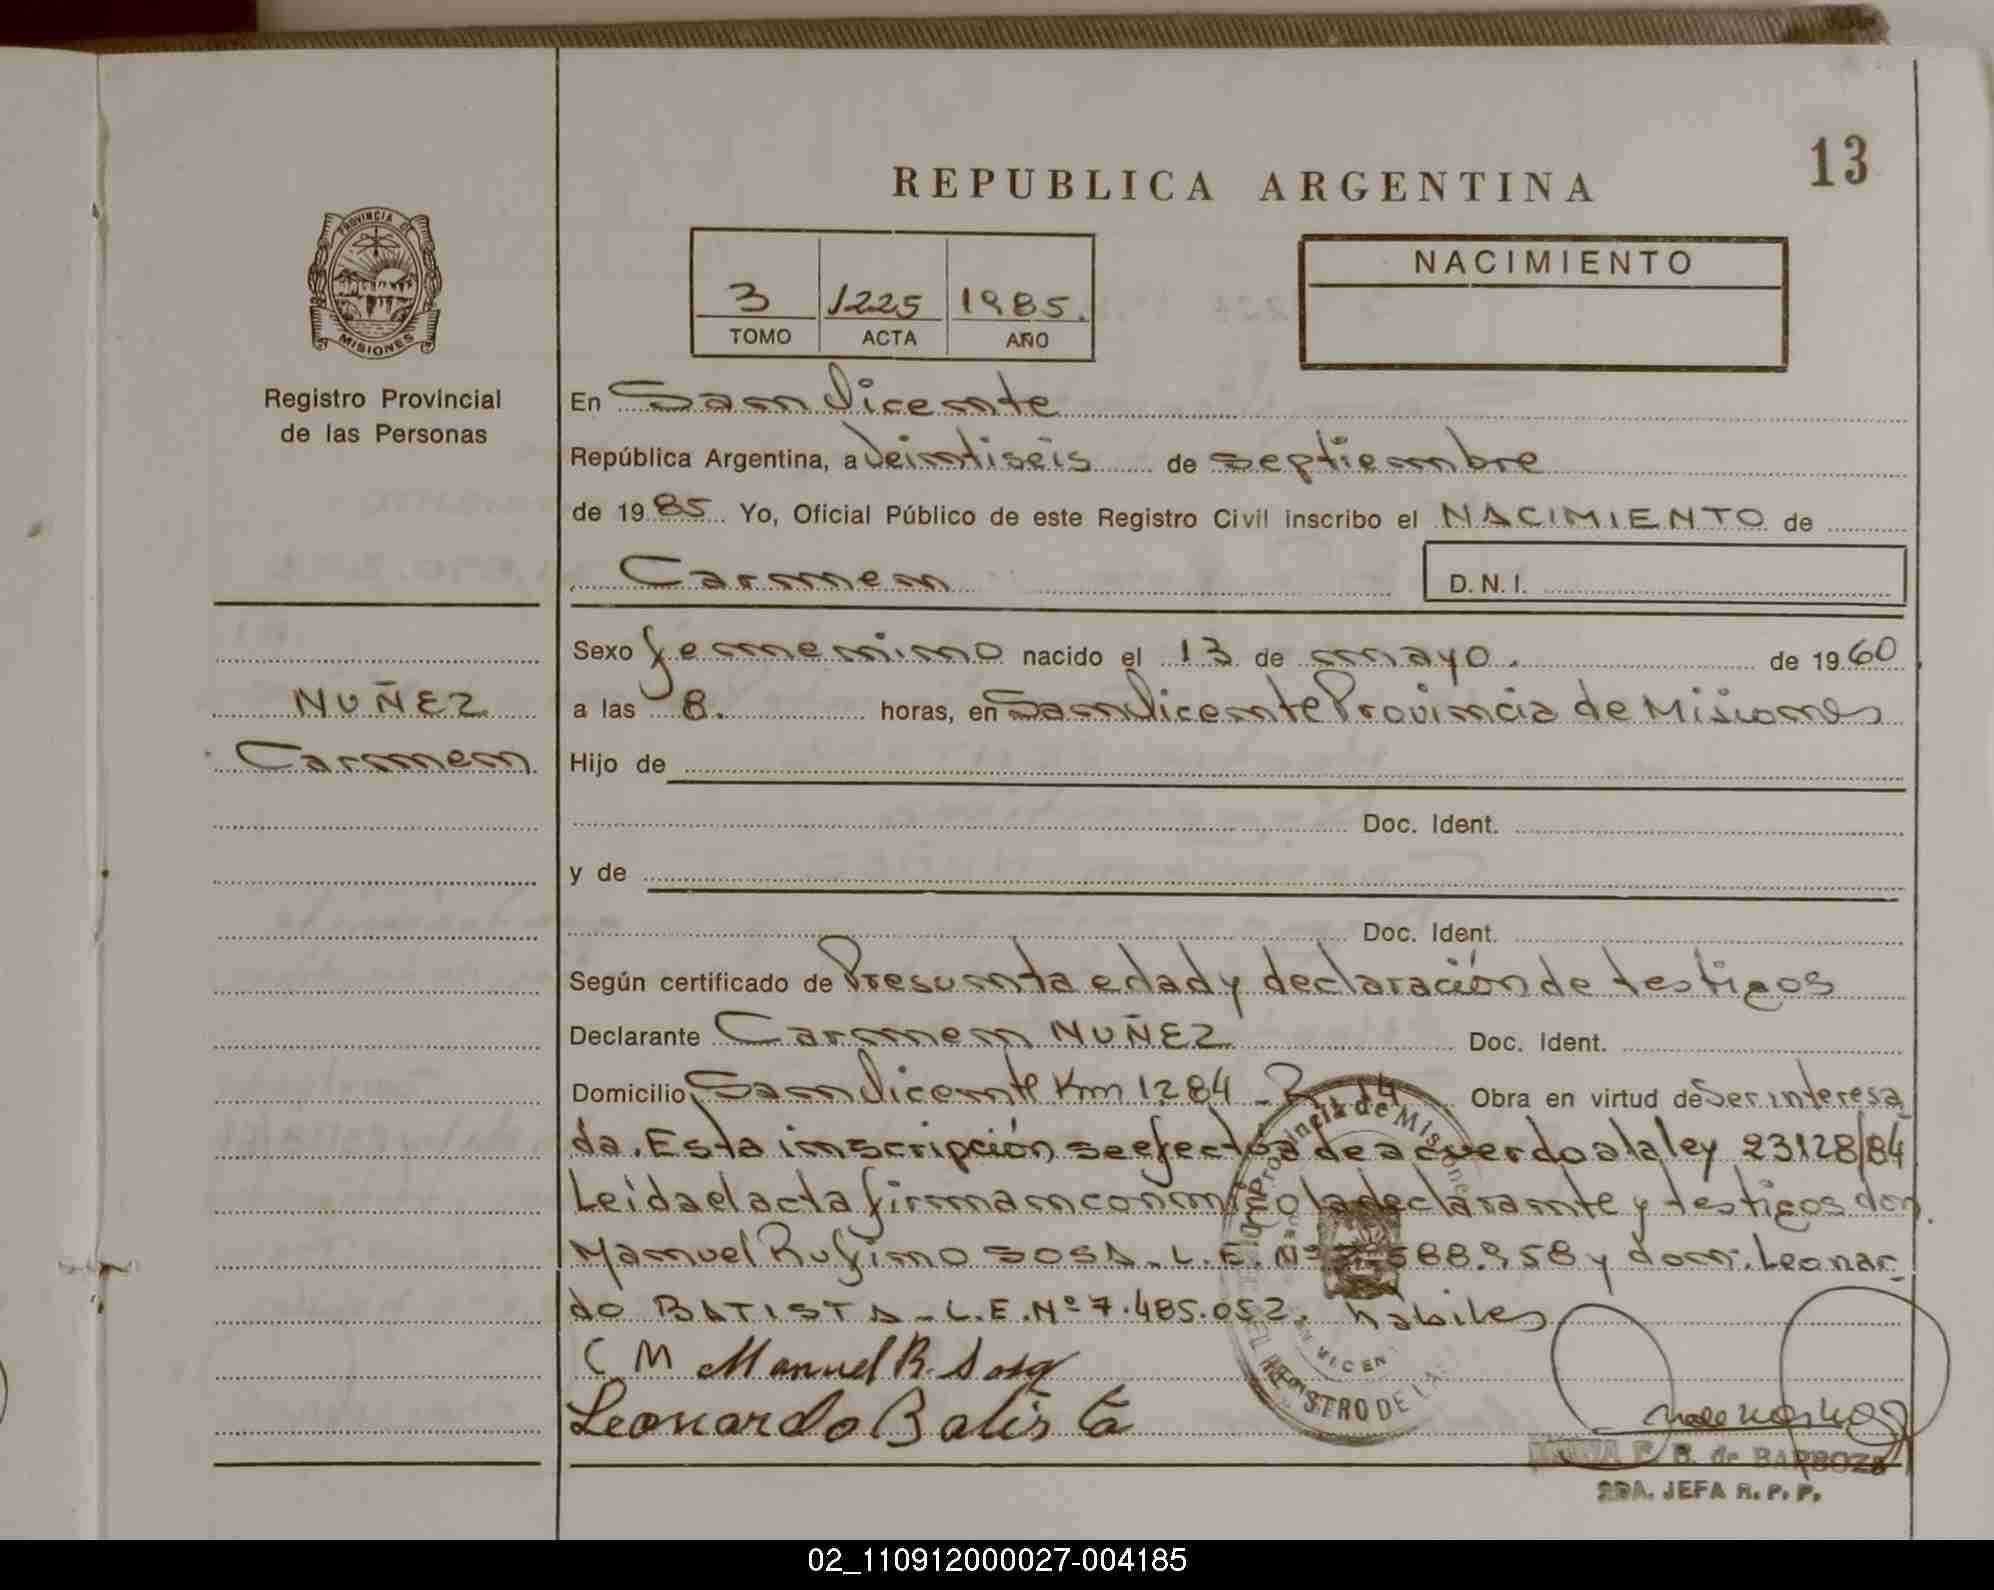 13
REPUBLICA ARGENTINA
PROVINCIA DE
MISIONES
Registro Provincial
de las Personas
3 1225 1985.
TOMO ACTA AÑO
NACIMIENTO
En San Vicente
República Argentina, a Veintiseis de septiembre
de 1985 Yo, Oficial Público de este Registro Civil inscribo el NACIMIENTO de
Carmen D.N.I.
NUÑEZ
Carmen
Sexo femenino nacido el 13 de mayo. de 1960
a las 8. horas, en San Vicente Provincia de Misiones
Hijo de
Doc. Ident.
y de
Doc. Ident.
Según certificado de Presunta edad y declaración de testigos
Declarante Carmen NUÑEZ Doc. Ident.
Domicilio San Vicente Km 1284 - R 14 Obra en virtud de Ser interesa
da. Esta inscripción se efectúa de acuerdo a la ley 23128/84
Leída el acta firman conmigo la declarante y testigos don
Manuel Rufino SOSA - L.E. Nº 588.958 y don. Leonar
do BATISTA - L.E. Nº 7.485.052. habiles
C M Manuel R. Sosa
Leonardo Batista
Provincia de Misiones
REGISTRO DE LA
B. de BARBOZA
2DA. JEFA R. P. P.
02_110912000027-004185